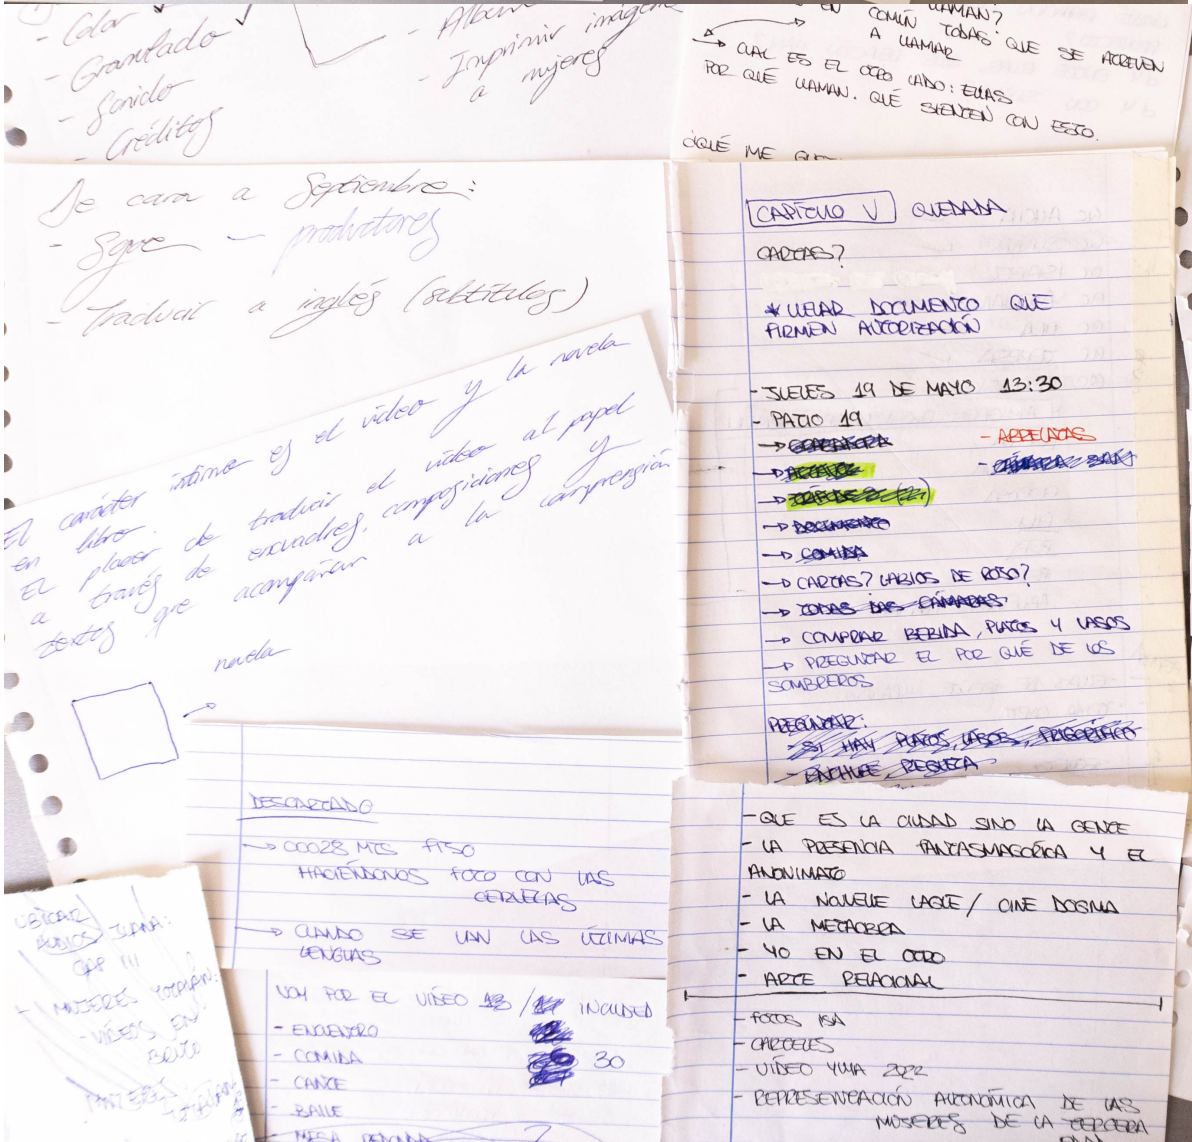 - Color ✓
- Granulado ✓
- Sonido
- Créditos
- Álbum
- Imprimir imágenes
a mujeres
EN COMÚN TODAS QUE SE ATREVEN
A LLAMAR
→ CUAL ES EL OTRO LADO: ELLAS
POR QUÉ LLAMAN. QUÉ SIENTEN CON ESTO.
¿QUÉ ME
De cara a Septiembre:
- Sgae - productores
- Traducir a inglés (subtítulos)
El carácter íntimo es el vídeo y la novela
en libro.
El placer de traducir el vídeo al papel
a través de encuadres, composiciones y
textos que acompañan a la comprensión
novela
CAPÍTULO V QUEDADA
CARTAS?
* LLEVAR DOCUMENTO QUE
FIRMEN AUTORIZACIÓN
- JUEVES 19 DE MAYO 13:30
- PATIO 19
→ DOCUMENTO
→ COMIDA
→ CARTAS? LABIOS DE ROJO?
→ TODAS LAS CÁMARAS
→ COMPRAR BEBIDA, PLATOS Y VASOS
→ PREGUNTAR EL POR QUÉ DE LOS
SOMBREROS
PREGUNTAR:
- SI HAY PLATOS, VASOS, FRIGORÍFICO
- ENCHUFE,
DESCARTADO
→ 00028 MTS
HACIÉNDONOS FOTO CON LAS
CERVEZAS
→ CUANDO SE VAN LAS ÚLTIMAS
LENGUAS
UBICAR
AUDIOS JUANA:
CAP III
- MUJERES
- VÍDEOS EN
BRUTO
VOY POR EL VÍDEO 13 / INCLUDED
- ENCUENTRO
- COMIDA 30
- CANTE
- BAILE
- MESA REDONDA
- QUE ES LA CIUDAD SINO LA GENTE
- LA PRESENCIA FANTASMAGÓRICA Y EL
ANONIMATO
- LA NOUVELLE VAGUE / CINE DOGMA
- LA METAOBRA
- YO EN EL OTRO
- ARTE RELACIONAL
- FOTOS ISA
- CARTELES
- VÍDEO YUVA 2022
- REPRESENTACIÓN AUTONÓMICA DE LAS
MUJERES DE LA TERCERA